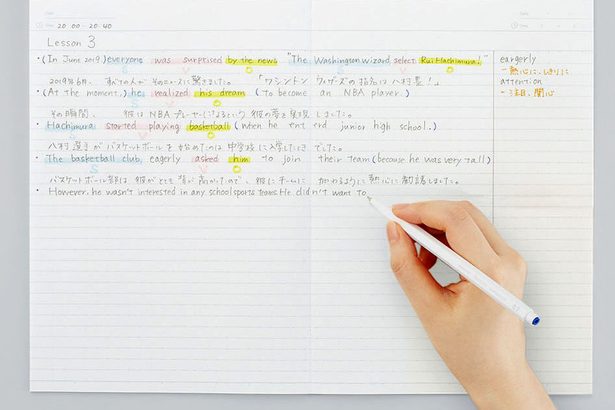 20:00 - 20:40
Lesson 3
・(In June 2019) everyone was surprised by the news "The Washington Wizard select Rui Hachimura!"
S V O
2019年6月、 すべての人が そのニュースに驚きました。 「ワシントン ウィザーズの指名は八村塁！」
・(At the moment,) he realized his dream (to become an NBA player.)
S V O
その瞬間、 彼は NBAプレーヤーになるという 彼の夢を実現しました。
・Hachimura started playing basketball (when he entered junior high school.)
S V O
八村塁がバスケットボールを始めたのは中学校に入学したときでした。
・The basketball club, eagerly asked him to join their team (because he was very tall)
S V O
バスケットボール部は彼がとても背が高かったので、彼にチームに加わるように熱心に勧誘しました。
・However, he wasn't interested in any school sports teams. He didn't want to
eargerly
→熱心に、しきりに
attention
→注目、関心